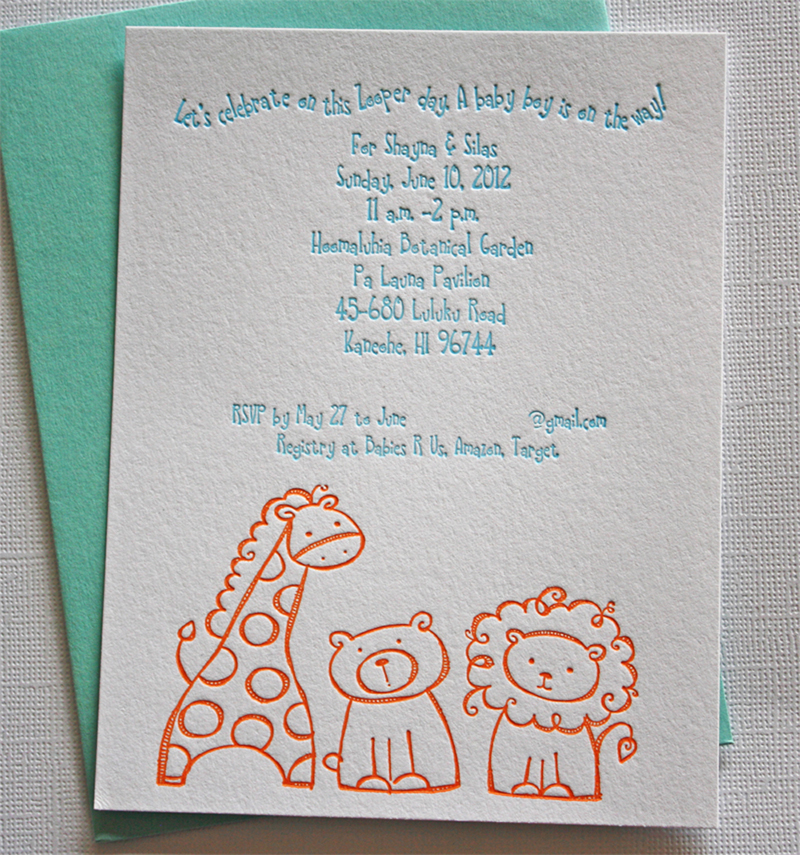 Let's celebrate on this Zooper day. A baby boy is on the way!
For Shayna & Silas
Sunday, June 10, 2012
11 a.m. -2 p.m.
Hoomaluhia Botanical Garden
Pa Launa Pavilion
45-680 Luluku Road
Kaneohe, HI 96744
RSVP by May 27 to June @gmail.com
Registry at Babies R Us, Amazon, Target